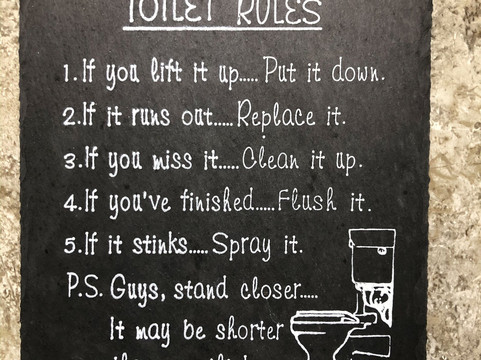 TOILET RULES
1. If you lift it up..... Put it down.
2. If it runs out..... Replace it.
3. If you miss it..... Clean it up.
4. If you've finished..... Flush it.
5. If it stinks..... Spray it.
P.S. Guys, stand closer.....
It may be shorter